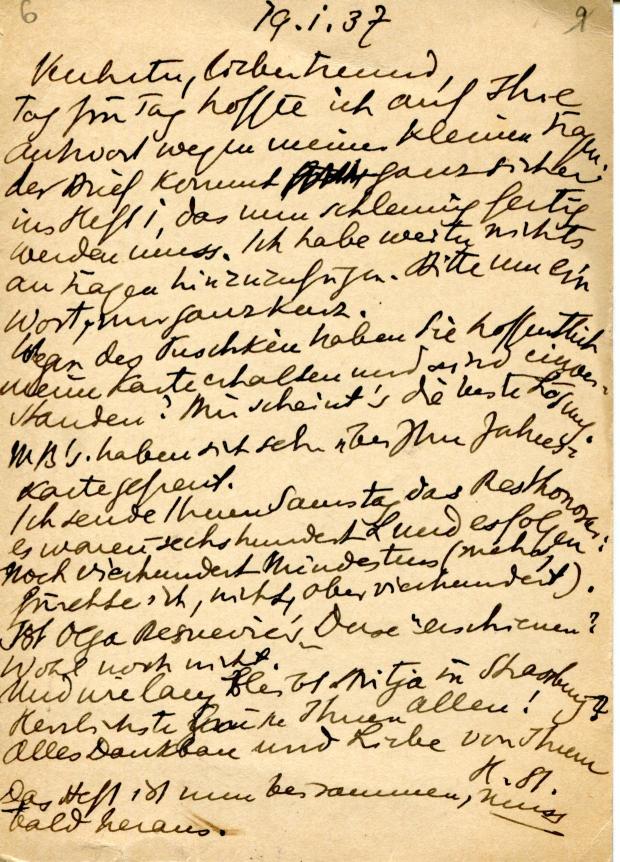 6 9
19.I.37
Verehrter, lieber Freund,
Tag für Tag hoffte ich auf Ihre
Antwort wegen meiner kleinen Fragen.
der Brief kommt ganz sicher
ins Heft 1, das nun schleunig fertig
werden muss. Ich habe weiter nichts
an Fragen hinzuzufügen. Bitte um ein
Wort, nur ganz kurz.
Wegen des Puschkin haben Sie hoffentlich
meine Karte erhalten und sind einver-
standen? Mir scheint's die beste Lösung.
MB's. haben sich sehr über Ihre Jahres-
karte gefreut.
Ich sende Ihnen Samstag das Resthonorar:
es waren sechshundert L und es folgen
noch vierhundert mindestens (mehr,
fürchte ich, nicht, aber vierhundert).
Ist Olga Resnevic's „Duse" erschienen?
Wohl noch nicht.
Und wie lang bleibt Mitja in Strassburg?
Herzlichste Grüsse Ihnen allen!
Alles Dankbare und Liebe von Ihrem
H. St.
Das Heft ist nun beisammen, muss
bald heraus.